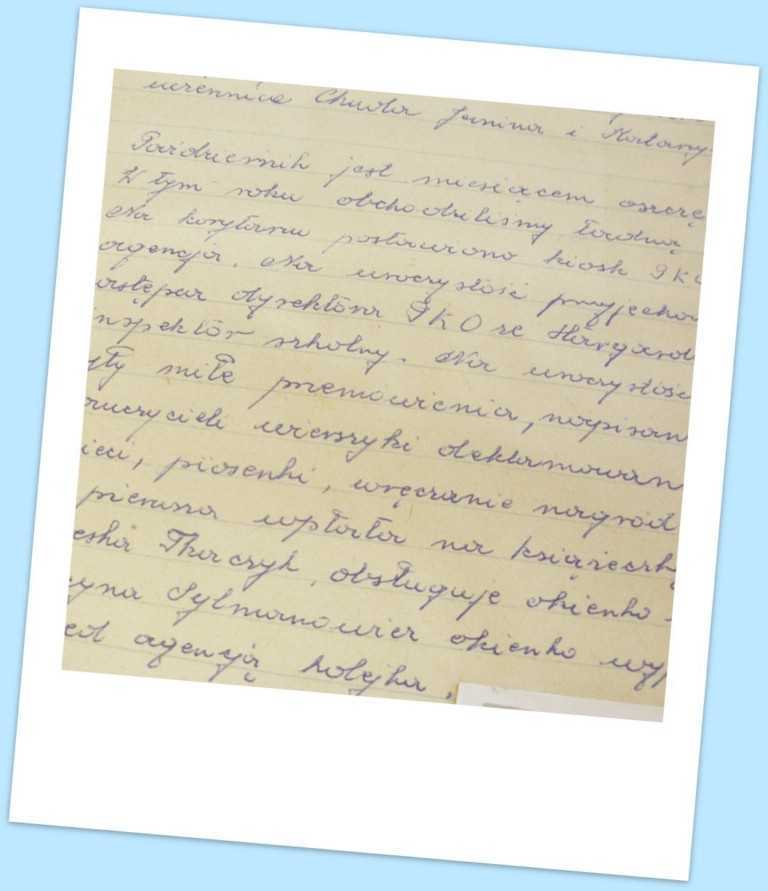 uczennice Chuda Janina i Katarzy
Październik jest miesiącem oszczę
W tym roku obchodziliśmy ładną
Na korytarzu postawiono kiosk PKO
agencja. Na uroczystość przyjecha
astępca dyrektora PKO ze Stargard
inspektor szkolny. Na uroczystość
yły miłe przemówienia, napisan
auczycieli wierszyki deklamowan
ieci, piosenki, wręczanie nagród
pierwsza wpłata na książeczk
eska Tkaczyk, obsługuje okienko
yna Sylmanowicz okienko wyp
ed agencją kolejka.